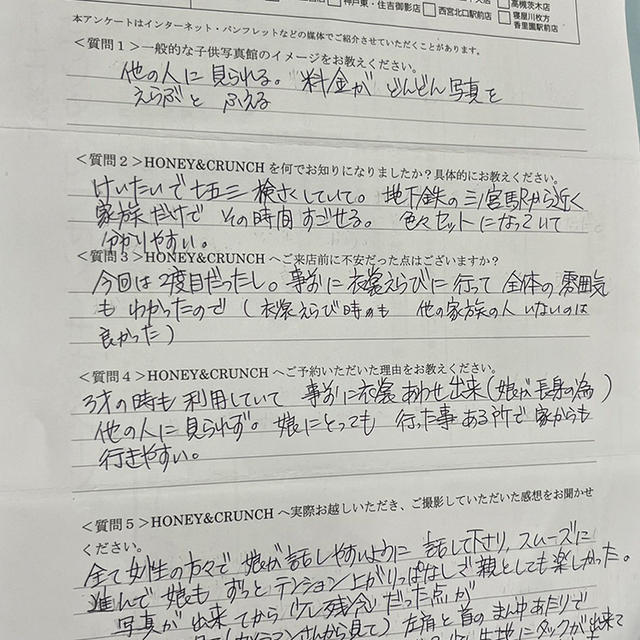 神戸東・住吉御影店
西宮北口駅前店
高槻茨木店
寝屋川枚方
香里園駅前店
本アンケートはインターネット・パンフレットなどの媒体でご紹介させていただくことがあります。
＜質問１＞一般的な子供写真館のイメージをお教えください。
他の人に見られる。料金が どんどん写真を
えらぶと ふえる
＜質問２＞HONEY&CRUNCH を何でお知りになりましたか？具体的にお教えください。
けいたいで 七五三 検さくしていて。地下鉄の三ノ宮駅から近く
家族だけで その時間 すごせる。 色々セットになっていて
分かりやすい。
＜質問３＞HONEY&CRUNCH へご来店前に不安だった点はございますか？
今回は2度目だったし。事前に衣裳えらびに行って 全体の雰囲気
も わかったので（衣裳えらび時も 他の家族の人いないのは
良かった）
＜質問４＞HONEY&CRUNCH へご予約いただいた理由をお教えください。
3才の時も利用していて 事前に衣裳あわせ出来（娘が長身の為）
他の人に見られず。娘にとっても 行った事ある所で家からも
行きやすい。
＜質問５＞HONEY&CRUNCH へ実際お越しいただき、ご撮影していただいた感想をお聞かせ
ください。
全て女性の方々で 娘が話しやすいように 話して下さり、スムーズに
進んで娘も ずっとテンション上がりっぱなしで親としても楽しかった。
写真が出来てから 残念だった点が
さんから見て）左肩と首のまん中あたりで
タックが出来て